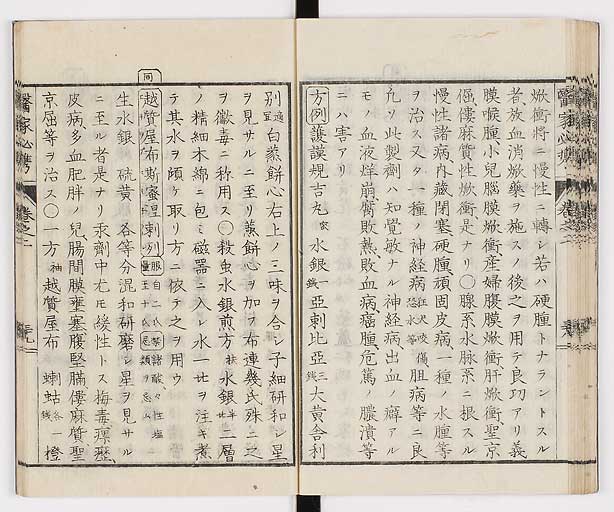 焮衝将ニ慢性ニ轉シ若ハ硬腫トナラントスル
者放血消焮藥ヲ施ス後之ヲ用テ良功アリ義
膜喉腫小兒腦膜焮衝産婦腹膜焮衝肝焮衝聖京
傴僂麻質性焮衝是ナリ〇腺系水脉系ニ根スル
慢性諸病内藏閉塞硬腫頑固皮病一種ノ水腫等
ヲ治ス又タ一種ノ神經病狂犬咬傷恐水等胆病等ニ良
凢ソ此製劑ハ知覺敏ナル神經病出血ノ癖アル
モノ血液烊崩腐敗熱敗血病癌腫危篤ノ膿潰等
ニハ害アリ
方例護謨規吉丸家水銀一錢亞刺比亞三錢大黄舎利
別適宜白蒸餅心右上ノ三味ヲ合シ子細研和シ星
ヲ見サルニ至リ蒸餅心ヲ加フ布連幾氏殊ニ之
ヲ黴毒ニ称用ス〇殺虫水銀煎方扶水銀半二層
ノ精細木綿ニ包ミ磁器ニ入レ水一せヲ注キ煮
テ其水ヲ頒ケ取リ方ニ依テ之ヲ用ウ
同
越質屋布斯蜜涅刺列
生水銀 硫黄 各等分混和研磨シ星ヲ見サル
ニ至ル者是ナリ汞劑中尤モ緩性トス梅毒瘰癧
皮病多血肥胖ノ兒腸間膜壅塞腹堅膓僂麻質聖
京屈等ヲ治ス〇一方袖越質屋布 蝲蛄各一錢 橙
醫家必携
卷之二